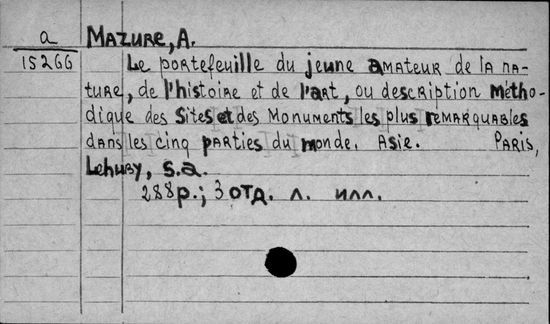 a MAZURE, A.
15266 Le portefeuille du jeune amateur de la na-
ture, de l'histoire et de l'art, ou description métho-
dique des sites et des monuments les plus remarquables
dans les cinq parties du monde. Asie. Paris,
Lehuby, s.a.
288p.; 3 отд. л. илл.